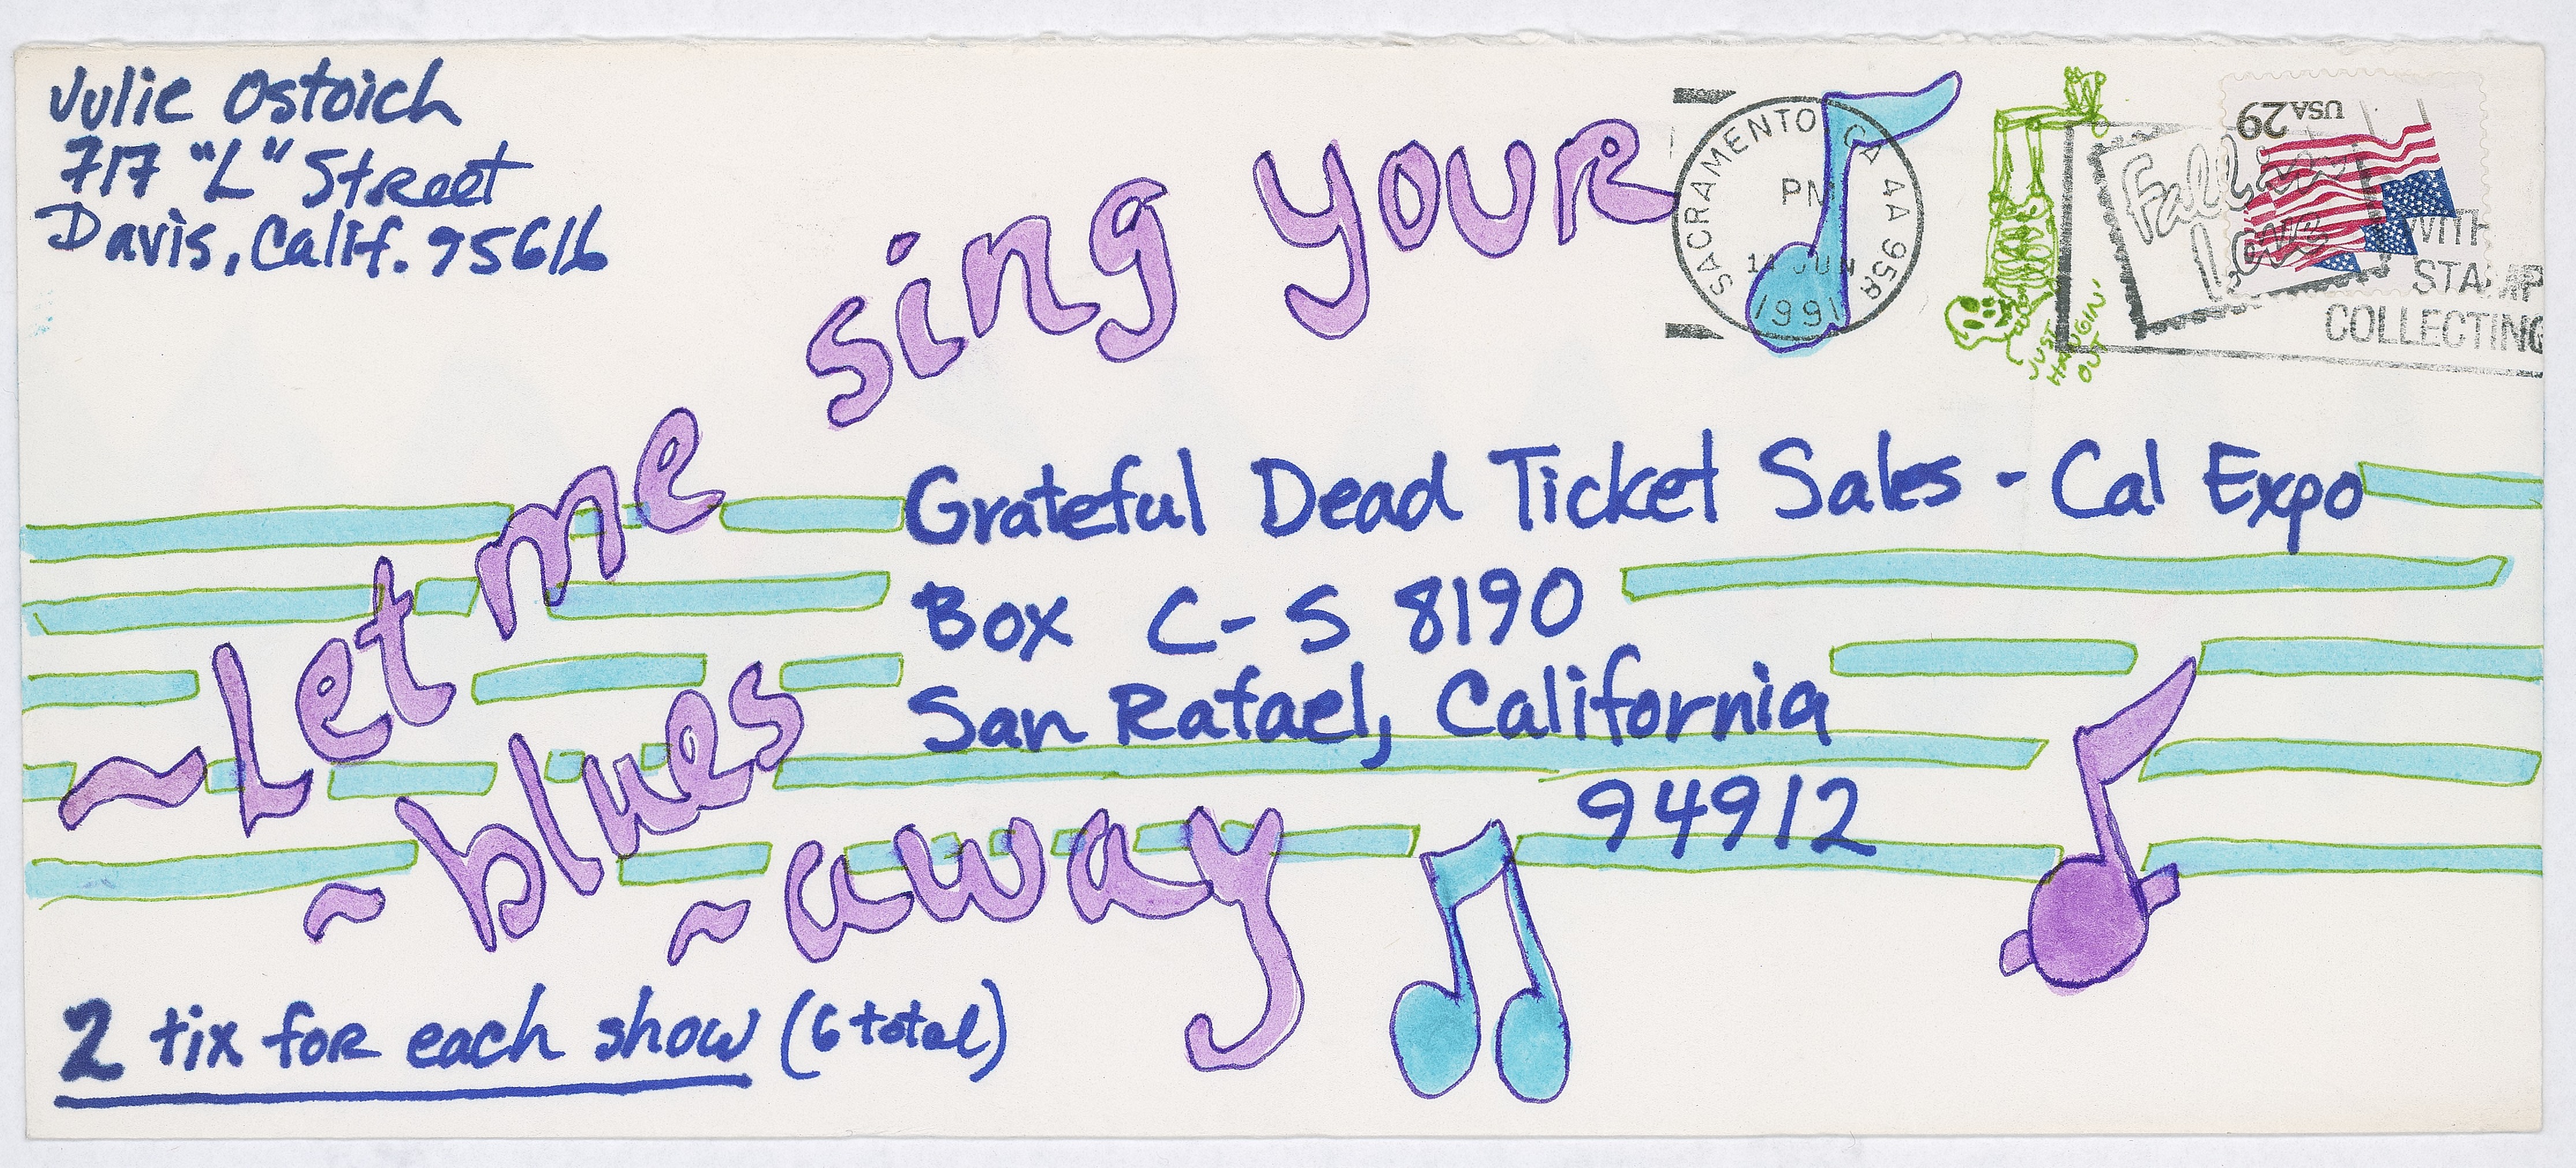 Julie Ostoich
717 "L" Street
Davis, Calif. 95616
SACRAMENTO CA 4A 958
PM
1991
JUST
HANGIN'
OUT
USA 29
Fall in
Love
WITH
STAMP
COLLECTING
~Let me sing your
~blues
~away
Grateful Dead Ticket Sales - Cal Expo
Box C-S 8190
San Rafael, California
94912
2 tix for each show (6 total)